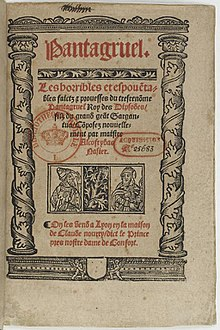 Pantagruel.
Les horribles et espouēta-
bles faictz ⁊ prouesses du tresrenōme
Pantagruel Roy des Dipsodes/
filz du grand geāt Gargan-
tua/ Cōposez nouvelle-
ment par maistre
Alcofrybas
Nasier.
25683
On les vend a Lyon en la maison
de Claude nourry/dict le Prince
pres nostre dame de Confort.